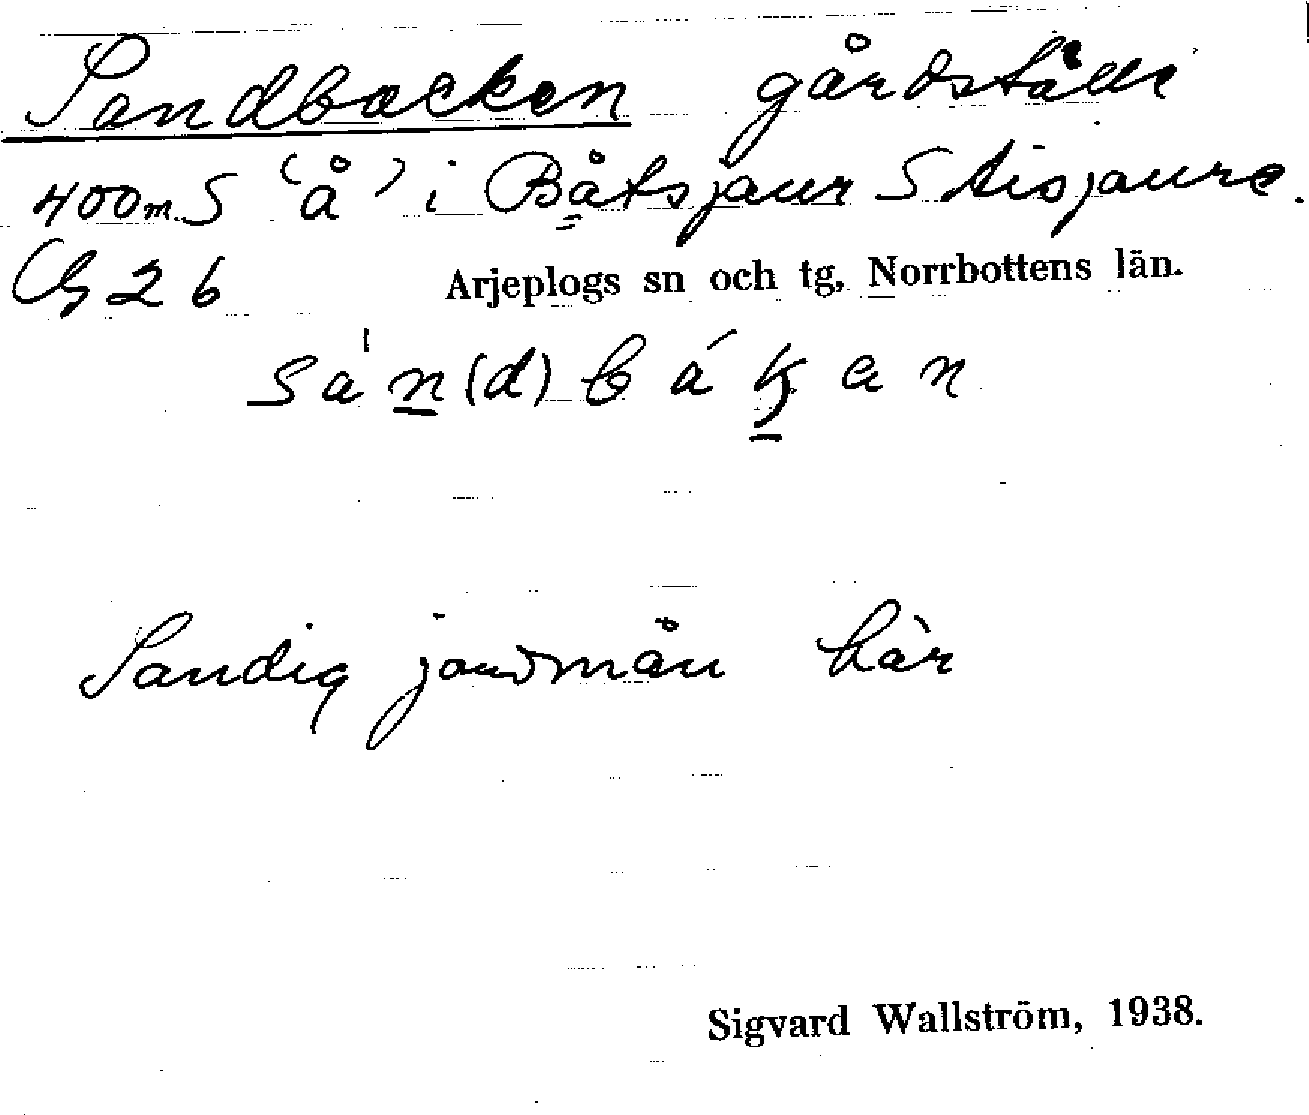 Sandbacken gårdställe
400 m S 'å' i Båtsjaur S Aisjaure.
G 2 6
Arjeplogs sn och tg, Norrbottens län.
sa'n(d)bákan
Sandig jordmån här
Sigvard Wallström, 1938.